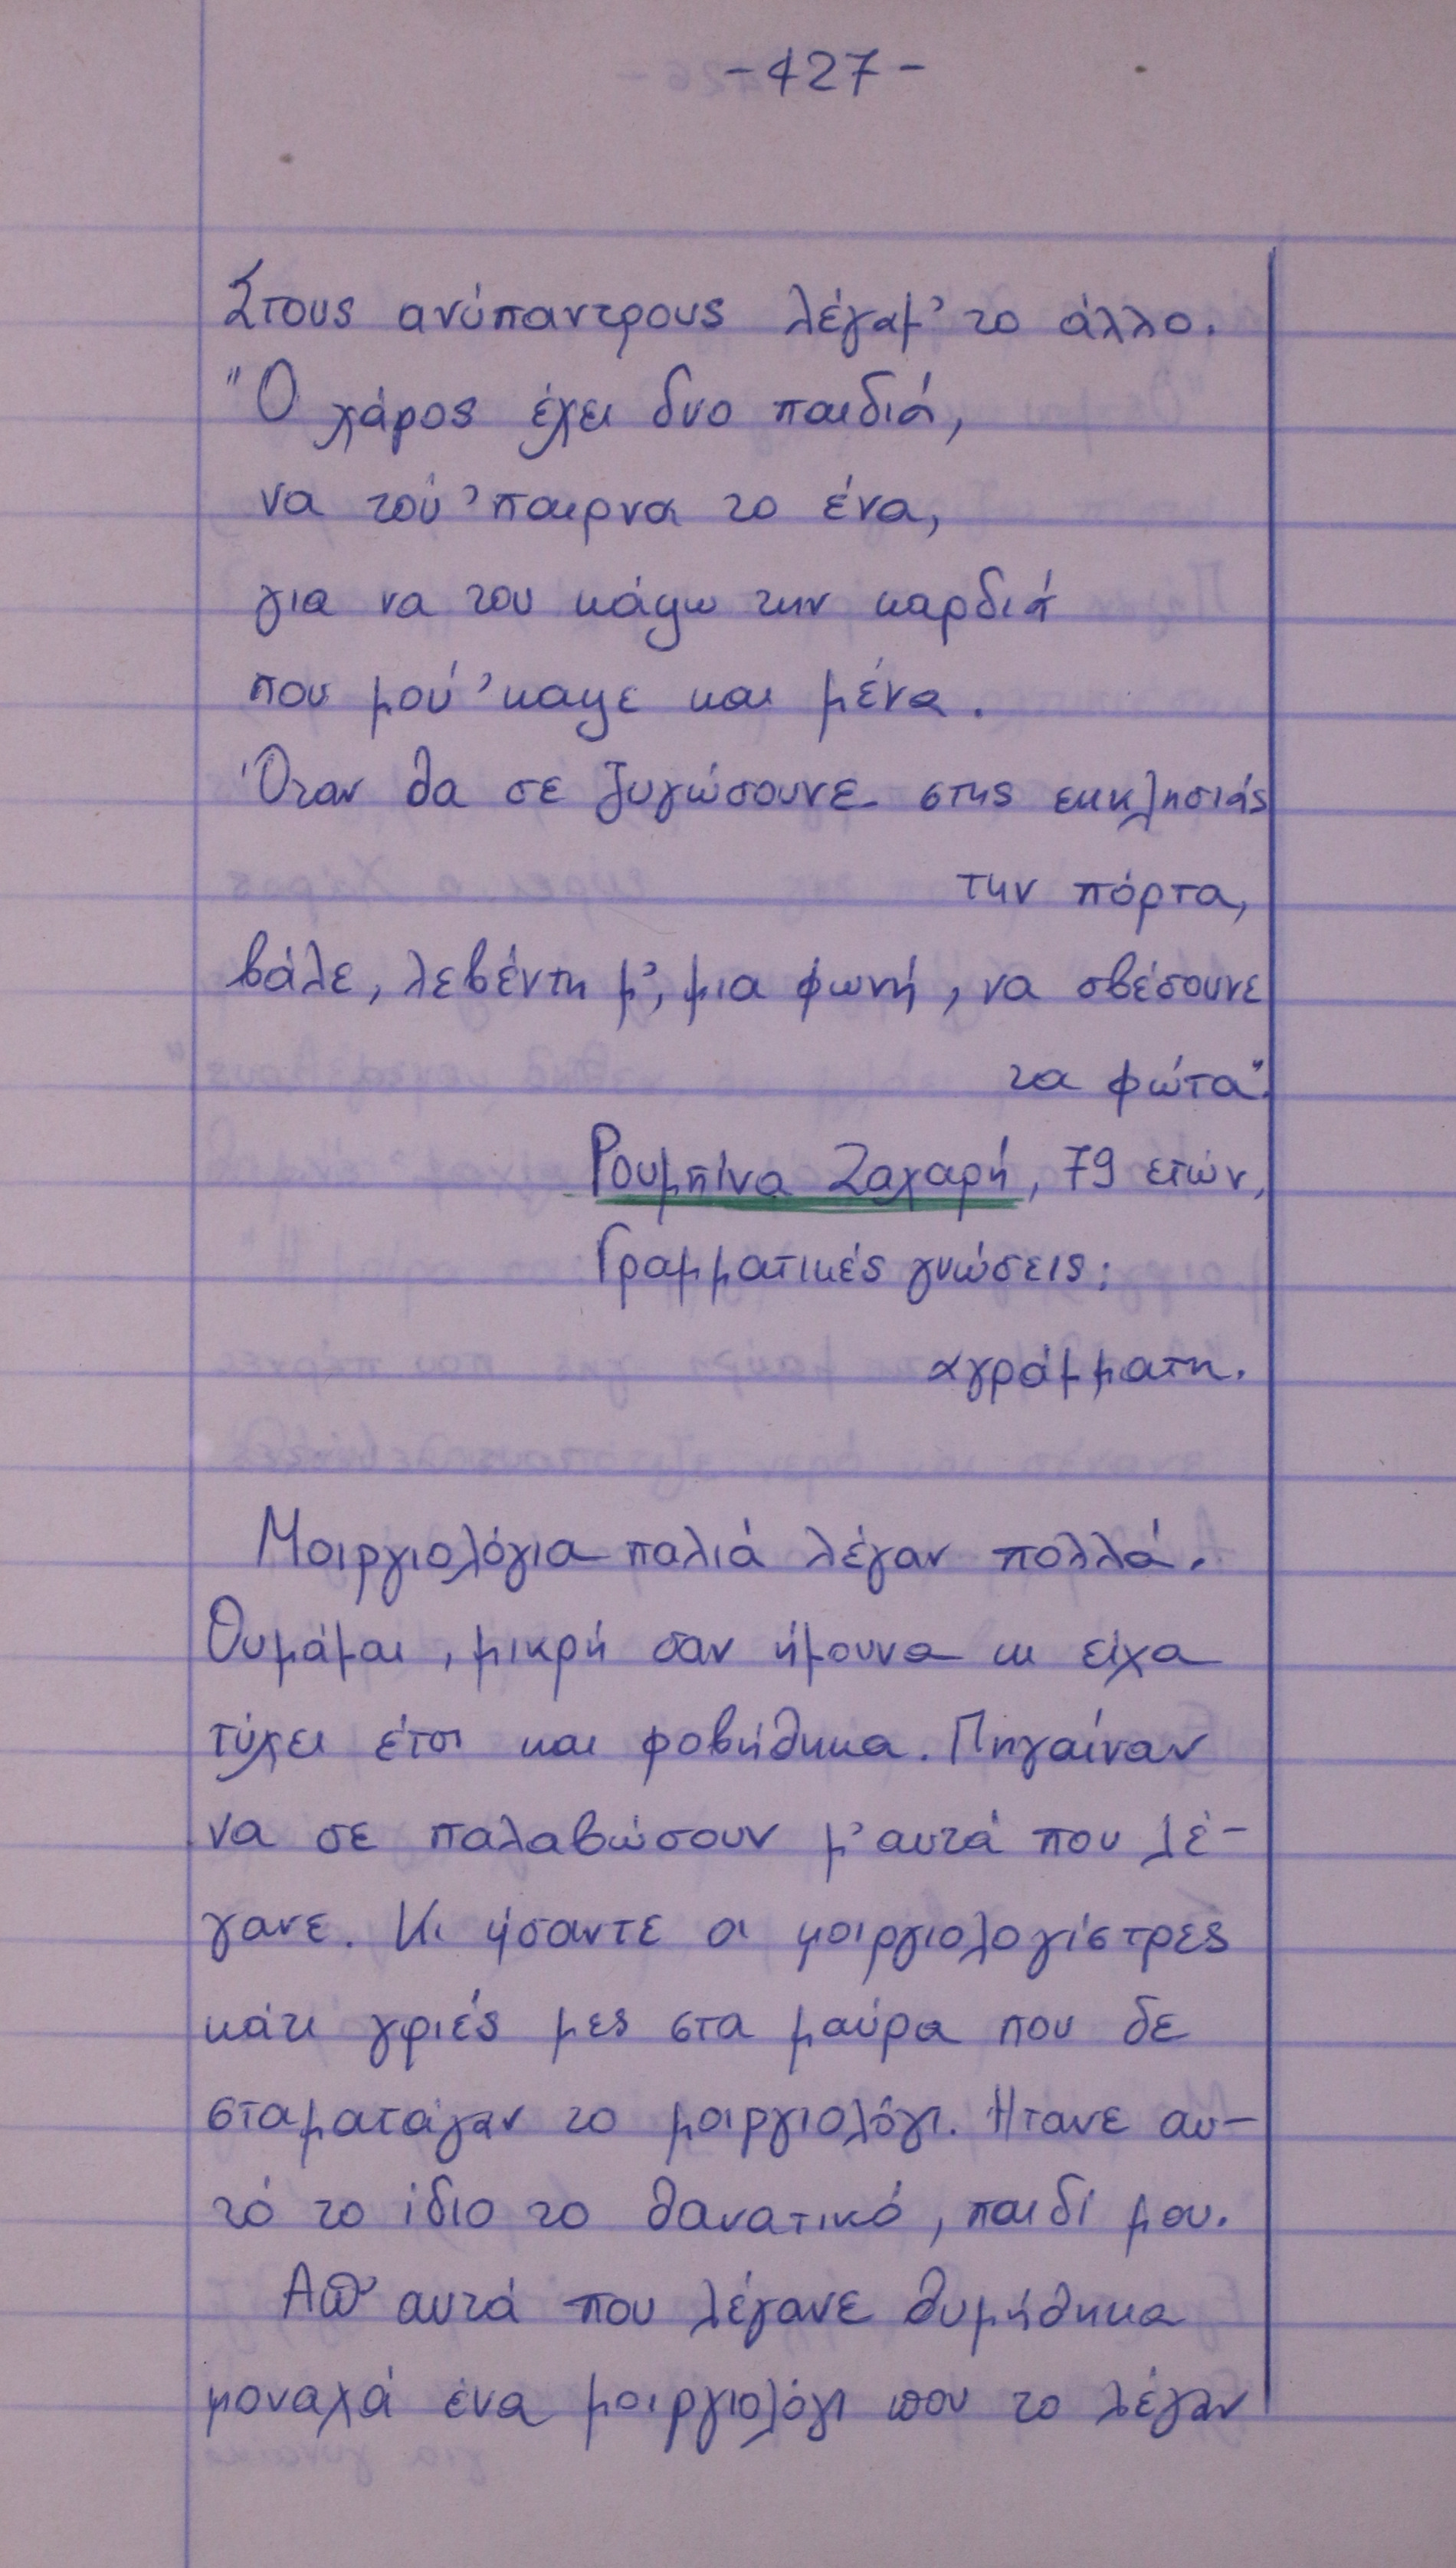 -427-
Στους ανύπαντρους λέγαμ' το άλλο.
"Ο χάρος έχει δυο παιδιά,
να τού 'παιρνα το ένα,
για να του κάψω την καρδιά
που μού 'καψε και μένα.
Όταν θα σε ζυγώσουνε στης εκκλησιάς
την πόρτα,
βάλε, λεβέντη μ', μια φωνή, να σβέσουνε
τα φώτα".
Ρουμπίνα Ζαχαρή, 79 ετών,
Γραμματικές γνώσεις:
αγράμματη.
Μοιργιολόγια παλιά λέγαν πολλά.
Θυμάμαι, μικρή σαν ήμουνα κι είχα
τύχει έτσι και φοβήθηκα. Πηγαίναν
να σε παλαβώσουν μ' αυτά που λέ-
γανε. Κι ήσαντε οι μοιργιολογίστρες
κάτι γριές μες στα μαύρα που δε
σταματάγαν το μοιργιολόγι. Ήτανε αυ-
τό το ίδιο το θανατικό, παιδί μου.
Απ' αυτά που λέγανε θυμήθηκα
μοναχά ένα μοιργιολόγι που το λέγαν